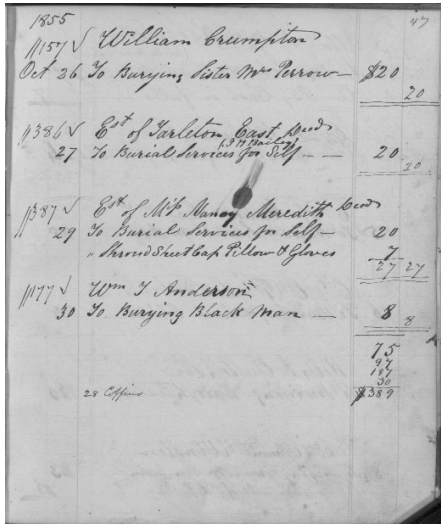 1855 47
p157 √ William Crumpton
Oct 26 To Burying Sister Mrs Perrow — $20
20
p386 √ Est of Tarleton East Decd
(J H Bailey)
27 To Burial Services for Self — — 20
20
p387 √ Est of Mrs Nancy Meredith Decd
29 To Burial Services for Self — 20
" Shroud Sheet Cap Pillow & Gloves 7
27 27
p177 √ Wm J Anderson
30 To Burying Black Man — 8
8
75
97
187
30
28 Coffins $389